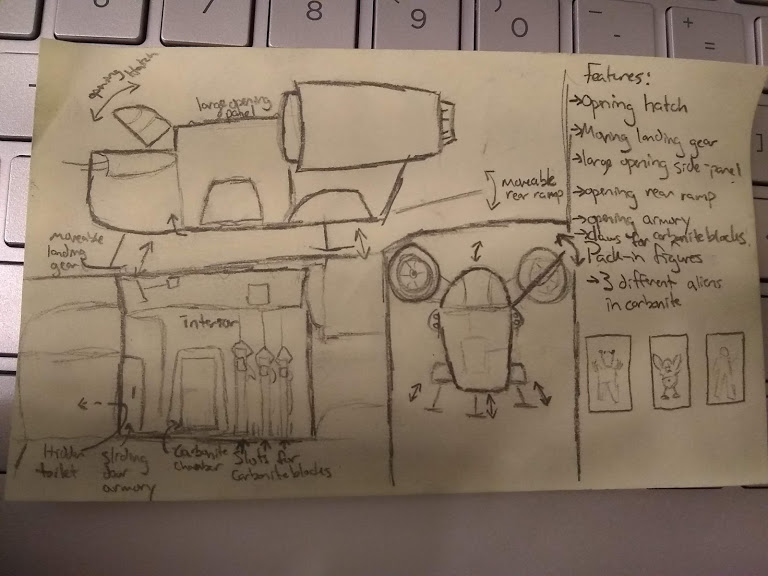 opening
hatch
large opening
panel
moveable
rear ramp
moveable
landing
gear
interior
Hidden
toilet
sliding
door
armory
Carbonite
chamber
Slots for
Carbonite blocks
Features:
→Opning hatch
→Moving landing gear
→large opening side-panel
→opening rear ramp
→opening armory
→claws for carbonite blocks
Pack-in figures
→3 different aliens
in carbonite
7
8
9
0
-
+
=